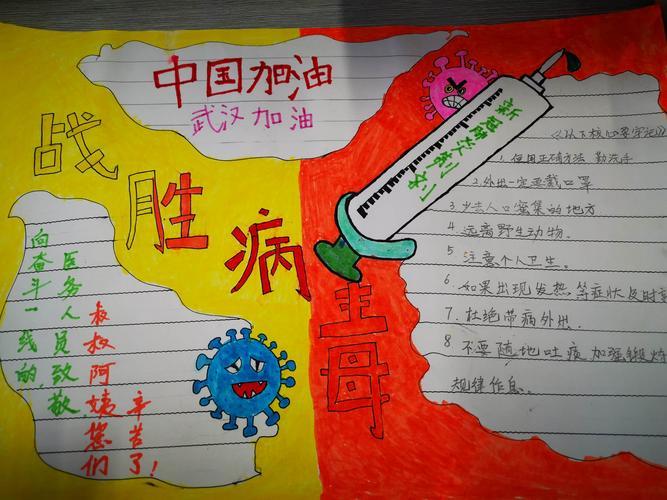 中国加油
武汉加油
战胜病毒
向奋斗一线的
医务人员致敬
叔叔阿姨您们
辛苦了!
《以下核心要牢记》
1. 使用正确方法 勤洗手
2.外出一定要戴口罩
3 少去人口密集的地方
4. 远离野生动物.
5 注意个人卫生。
6. 如果出现发热等症状及时
7. 杜绝带病外出.
8 不要随地吐痰 加强锻炼
规律作息.